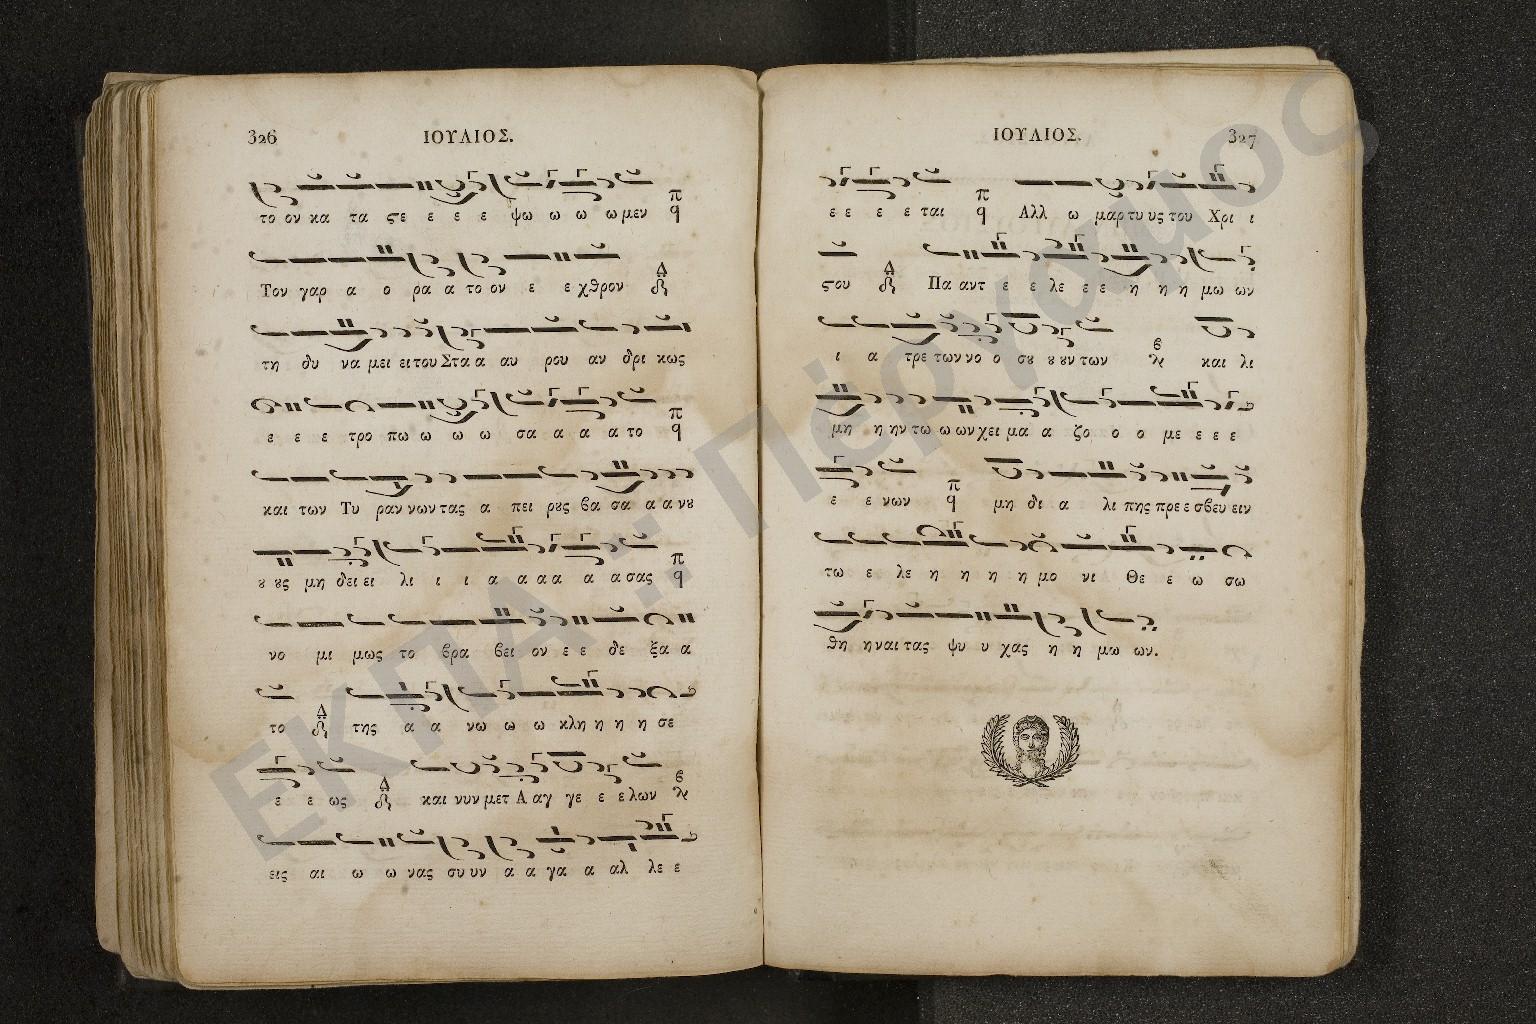 326 ΙΟΥΛΙΟΣ.
το ον κα τα ςε ε ε ε ψω ω ω ω μεν
Τον γαρ α ο ρα α το ον ε ε χθρον
τη δυ να μει ει του Στα α αυ ρου αν δρι κως
ε ε ε τρο πω ω ω ω σα α α α το
και των Τυ ραν νων τας α πει ρȣς βα σα α α νȣ
ȣ ȣς μη δει ει λι ι ι α α α α α α σας
νο μι μως το βρα βει ον ε ε δε ξα α
το της α α νω ω ω κλη η η η σε
ε ε ως και νυν μετ Α αγ γε ε ε λων
εις αι ω ω νας συ υν α α γα α αλ λε ε
ΙΟΥΛΙΟΣ. 327
ε ε ε ε ται Αλλ ω μαρ τυ υς του Χρι ι
ςου Πα αντ ε ε λε ε ε η η η μω ων
ι α τρε των νο ο σȣ ȣ ȣν των και λι
μη η ην τω ω ων χει μα α ζο ο ο με ε ε ε
ε ε νων μη δι α λι πης πρε ε σβευ ειν
τω ε λε η η η η μο νι Θε ε ω σω
θη η ναι τας ψυ υ χας η η μω ων.
ΕΚΠΑ :: Πέργαμος